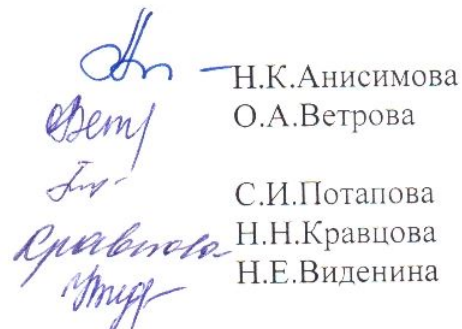 Н.К.Анисимова
О.А.Ветрова
С.И.Потапова
Кравцова Н.Н.Кравцова
Н.Е.Виденина